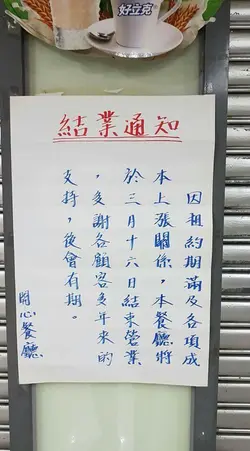 好立克
結業通知
因租約期滿及各項成
本上漲關係，本餐廳將
於三月十六日結束營業
，多謝各顧客多年來的
支持，後會有期。
開心餐廳